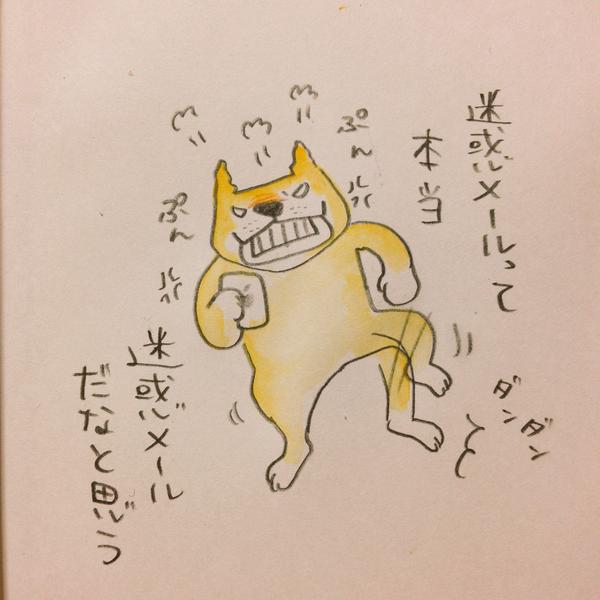 迷惑メールって
本当
ぷん
ぷん
ダンダン
迷惑メール
だなと思う